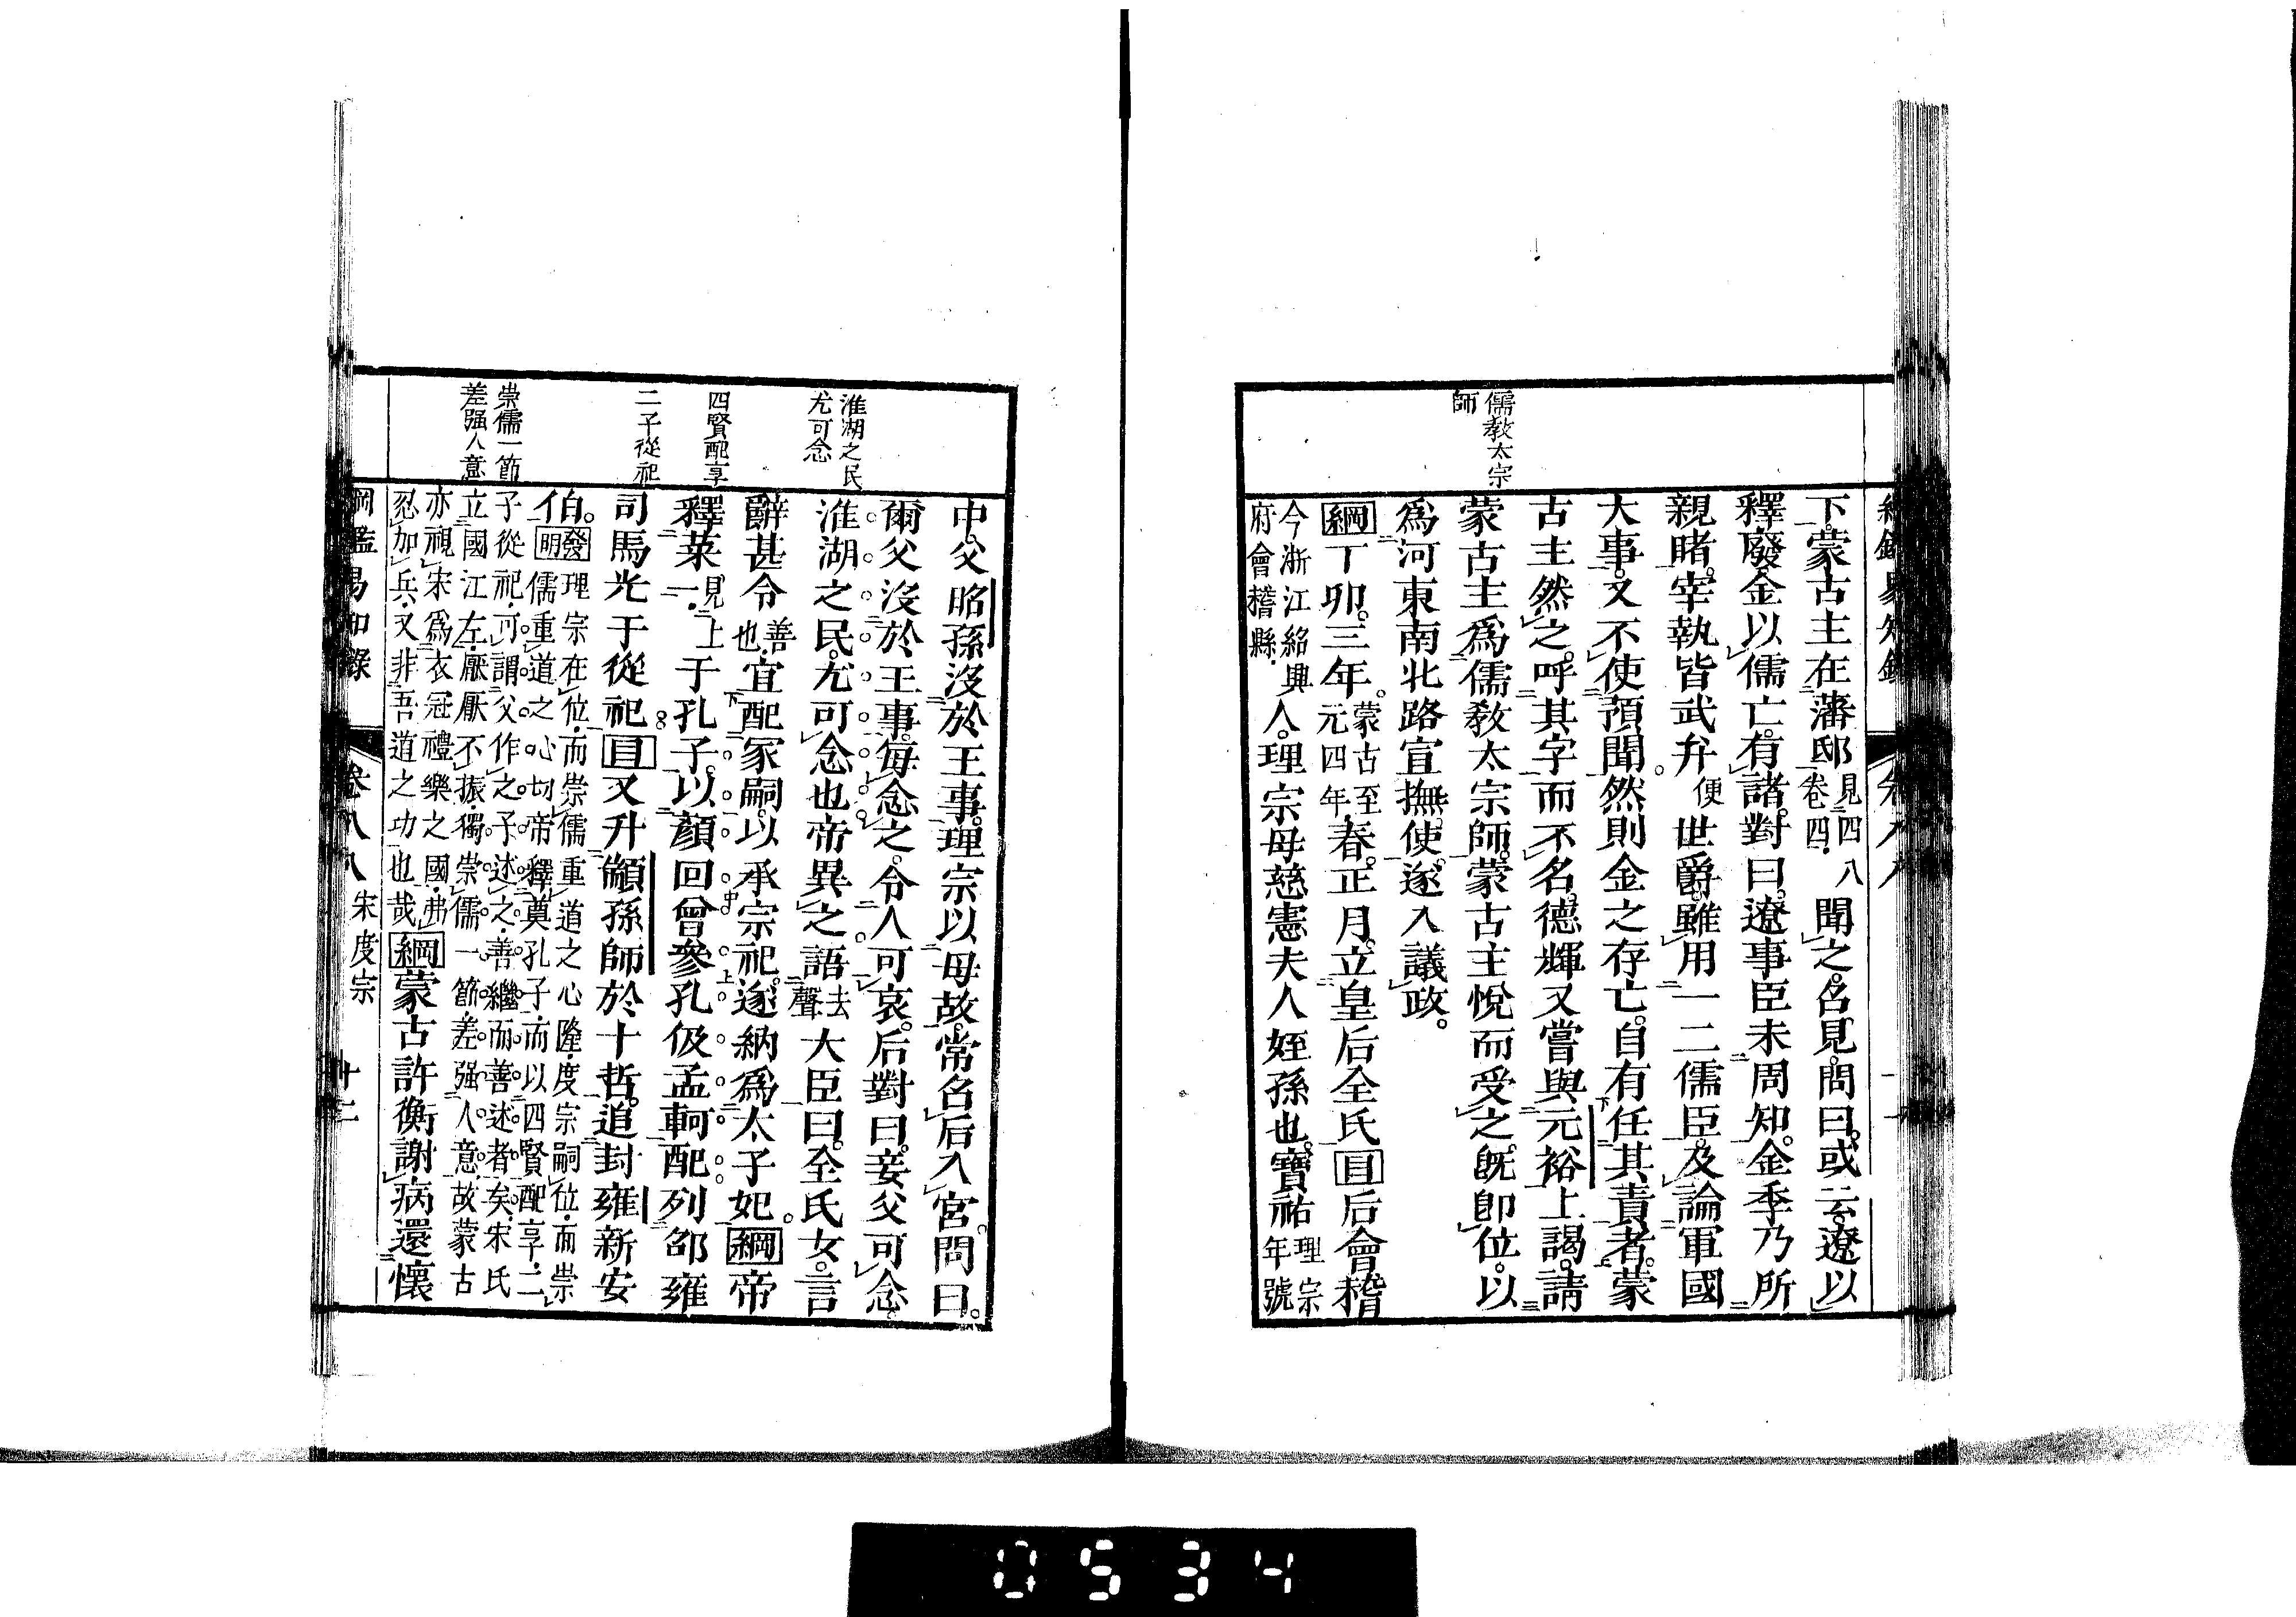 儒教太宗
師
下。蒙古主在藩邸見四八卷四。聞之。召見。問曰。或云。遼以
釋廢。金以儒亡。有諸。對曰。遼事臣未周知。金季乃所
親睹。宰執皆武弁便世爵。雖用一二儒臣。及論軍國
大事。又不使預聞。然則金之存亡。自有任其責者。蒙
古主然之。呼其字而不名。德輝又嘗與元裕上謁。請
蒙古主爲儒教太宗師。蒙古主悅而受之。既卽位。以
爲河東南北路宣撫使。遂入議政。
綱丁卯。三年。蒙古至元四年春。正月。立皇后全氏。目后會稽
今浙江紹興府會稽縣。人。理宗母慈憲夫人姪孫也。寶祐理宗年號
淮湖之民
尤可念
四賢配享
二子從祀
崇儒一節
差强人意
中。父昭孫沒於王事。理宗以母故。常召后入宮。問曰。
爾父沒於王事。每念之。令人可哀。后對曰。妾父可念。
淮湖之民。尤可念也。帝異之。語去聲大臣曰。全氏女。言
辭甚令善也。宜配冢嗣。以承宗祀。遂納爲太子妃。綱帝
釋菜一。見上于孔子。以顏回曾參孔伋孟軻配列。邵雍
司馬光于從祀。目又升顓孫師於十哲。追封雍新安
伯。發明理宗在位。而崇儒重道之心隆。度宗嗣位。而崇
儒重道之心切。帝釋奠孔子。而以四賢配享。二
子從祀。可謂父作之。子述之。善繼而善述者矣。宋氏
立國江左。厭厭不振。獨崇儒一節。差强人意。故蒙古
亦視宋爲衣冠禮樂之國。弗
忍加兵。又非吾道之功也哉綱蒙古許衡謝病還懷
綱鑑易知錄 卷八八 宋度宗 十二